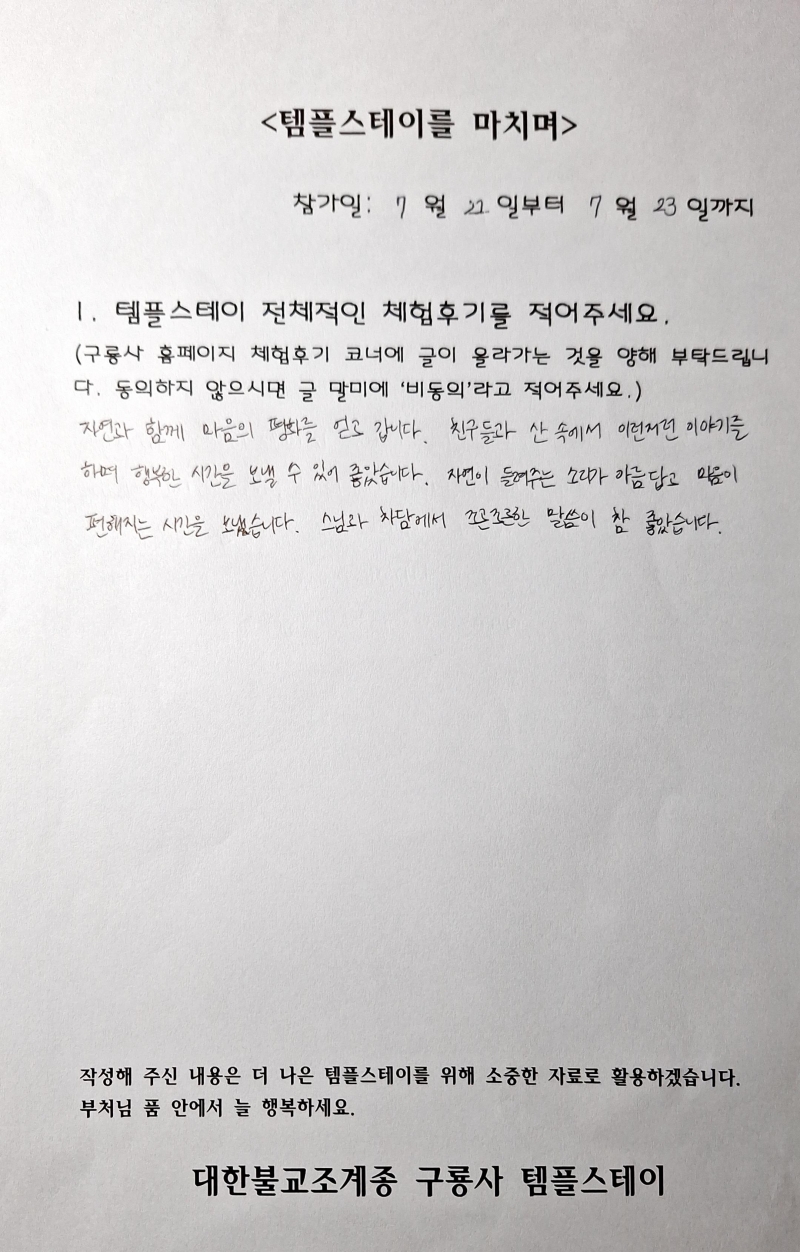 <템플스테이를 마치며>
참가일: 7 월 21 일부터 7 월 23 일까지
1. 템플스테이 전체적인 체험후기를 적어주세요.
(구룡사 홈페이지 체험후기 코너에 글이 올라가는 것을 양해 부탁드립니
다. 동의하지 않으시면 글 말미에 '비동의'라고 적어주세요.)
자연과 함께 마음의 평화를 얻고 갑니다. 친구들과 산 속에서 이런저런 이야기를
하며 행복한 시간을 보낼 수 있어 좋았습니다. 자연이 들려주는 소리가 아름답고 마음이
편해지는 시간을 보냈습니다. 스님과 차담에서 조곤조곤한 말씀이 참 좋았습니다.
작성해 주신 내용은 더 나은 템플스테이를 위해 소중한 자료로 활용하겠습니다.
부처님 품 안에서 늘 행복하세요.
대한불교조계종 구룡사 템플스테이